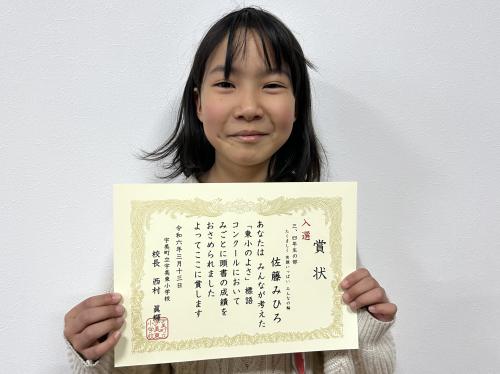 賞状
入選
三、四年生の部
佐藤みひろ
あなたは みんなが考えた
「東小のよさ」標語
コンクールにおいて
みごとに頭書の成績を
おさめられました
よってここに賞します
令和六年三月十三日
宇美町立宇美東小学校
校長 西村